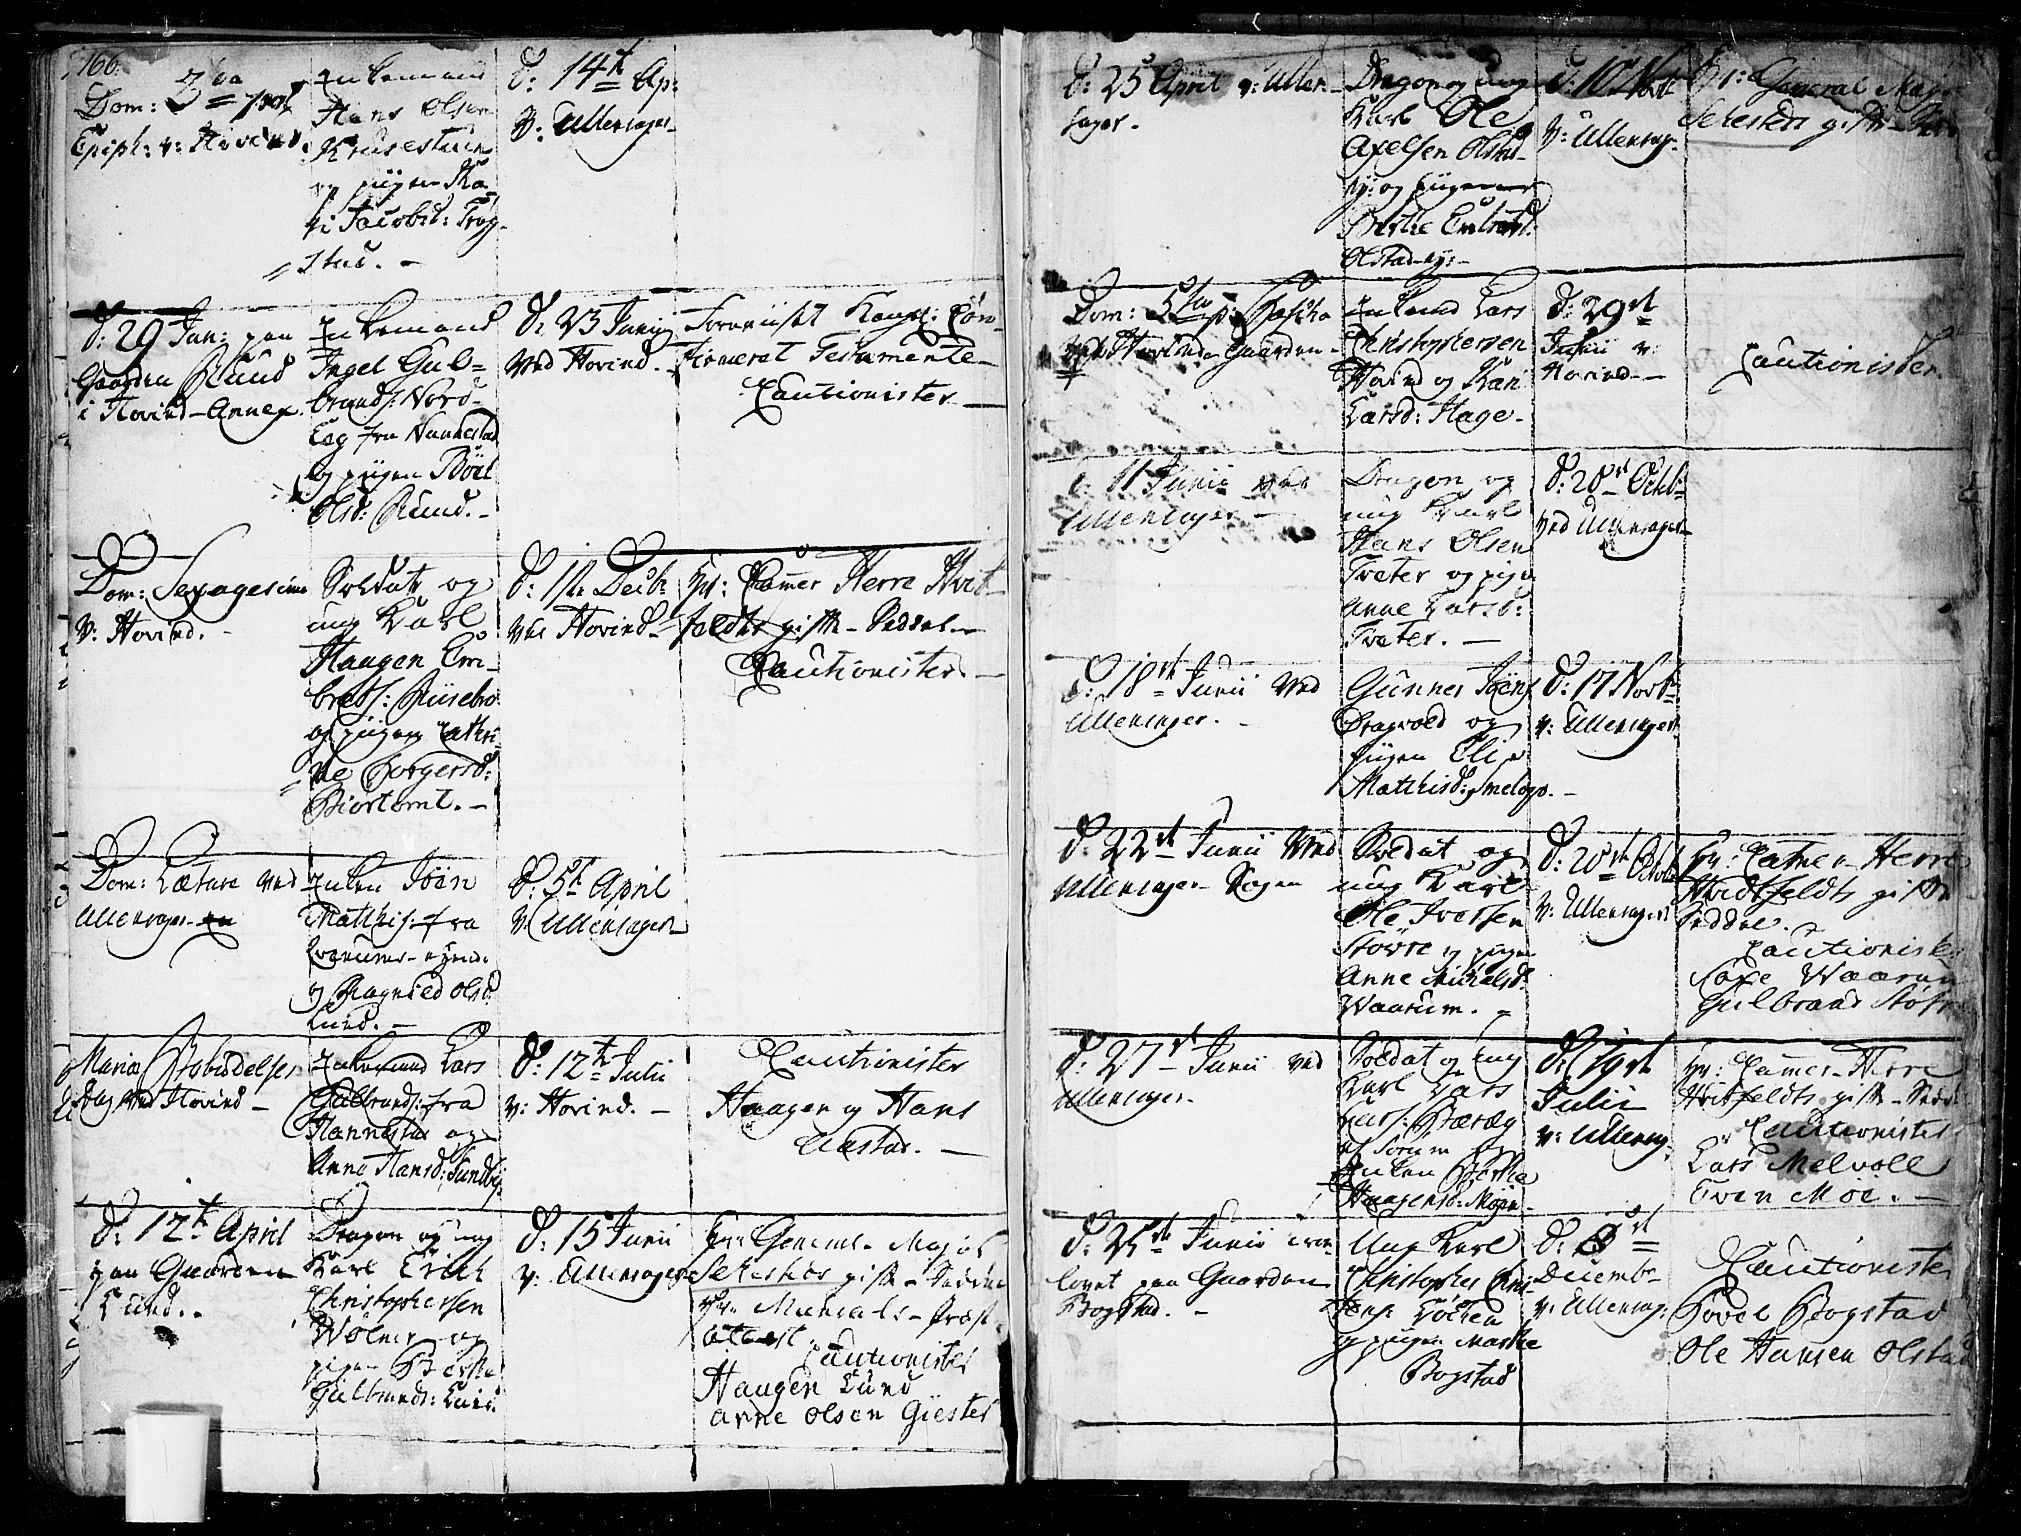 166.
Dom: 3tia post
Epiph: v: Hovind.
Enkemand
Hans Olsen
Krusestuen
og piigen Ka-
ri Jacobsd: Tryg-
stad. -
d: 14th Ap:
v: Ullensager
d: 29 Jan: paa
Gaarden Ruud
i Hovind-Annex.
Enkemand
Ingel Gul-
brands: Nord-
bye fra Nannestad
og piigen Böel
Olsd: Ruud. -
d: 23 Junij
ved Hovind.
Testamente
Cautionister
Dom: Sexagesima
v: Hovind. -
Soldat og
ung Karl
Haagen Em-
brets: Riisebro
og piigen Cathri-
ne Borgersd:
Biortomt. -
d: 1ste Decb:
ved Hovind
Hr: Camer Herre Hvit-
feldts gifte-Seddel
Cautionister. -
Dom: Lætare ved
Ullensager
Enken Joen
Matthis: fra
og Ragnild Olsd:
Lund. -
d: 5t April
v: Ullensager
Mariæ Bebudelses
Dag ved Hovind -
Enkemand Lars
Gulbrands: fra
Hannestad og
Anne Hansd: Sundby
d: 12th Julii
v: Hovind. -
Cautionister
Haagen og Hans
Aastad. -
d: 12t April
paa Gaarden
Lund. -
Dragon og ung
Karl Erich
Christophersen
Wölner og
pigen Berthe
Gulbrands: Lund
d: 15 Junii
v: Ullensager
Hr: General-Major
Sehesteds gifte-Seddel
attest.
Cautionister
Haagen Lund
Arne Olsen Giestad
d: 25 April v: Ullen-
sager.
Dragon og ung
Karl Ole
Axelsen Olstad-
ej: og piigen
Berthe Embretsd:
Olstad-ej: -
d: 10 Novb:
v: Ullensag:
Hr: General Maj:
Sehesteds gifte-
Dom: 5ta p: Pascha
ved Hovind Gaarden
Enkemd Lars
Christophersen
Hovind og Kari
Larsd: Hage.
d: 29st
Junii v:
Hovind. -
Cautionister.
d: 11 Junii ved
Ullensager -
Dragon og
ung Karl
Hans Olsen
Tveter og pige
Anne Larsd:
Tveter. -
d: 28st Octb:
ved Ullensager
d: 18th Junii ved
Ullensager. -
Gunner Joens:
Dragvold og
piigen Eli
Matthisd: Smelops. -
d: 17 Novb:
v: Ullensager
d: 22st Junii ved
Ullensager Sogn
Soldat og
ung Karl
Ole Iversen
Stovre og pige
Anne Michelsd:
Waarum. -
d: 20st Octob:
v: Ullensager
Hr: Camer-Herre
Hvitfeldts gifte
Seddel.
Cautionister
Waarum
Gulbrand
d: 27st Junii ved
Ullensager.
Soldat og ung
Karl Lars
Lars:
af Sorum og
Enken Berthe
Haagensd: Moen -
d: 19st
Julii
v: Ullensag:
Hr: Camer-Herre
Hvitfeldts gifte-Seddel
Cautionister
Lars Melvold
Even Moe. -
d: 25st Junii trov-
lovet paa Gaarden
Bogstad. -
Ung Karl
Christopher
og pigen Marthe
Bogstad
d: 8st
Decemb:
v: Ullensag:
Cautionister
Povel Bogstad
Ole Hansen Olstad